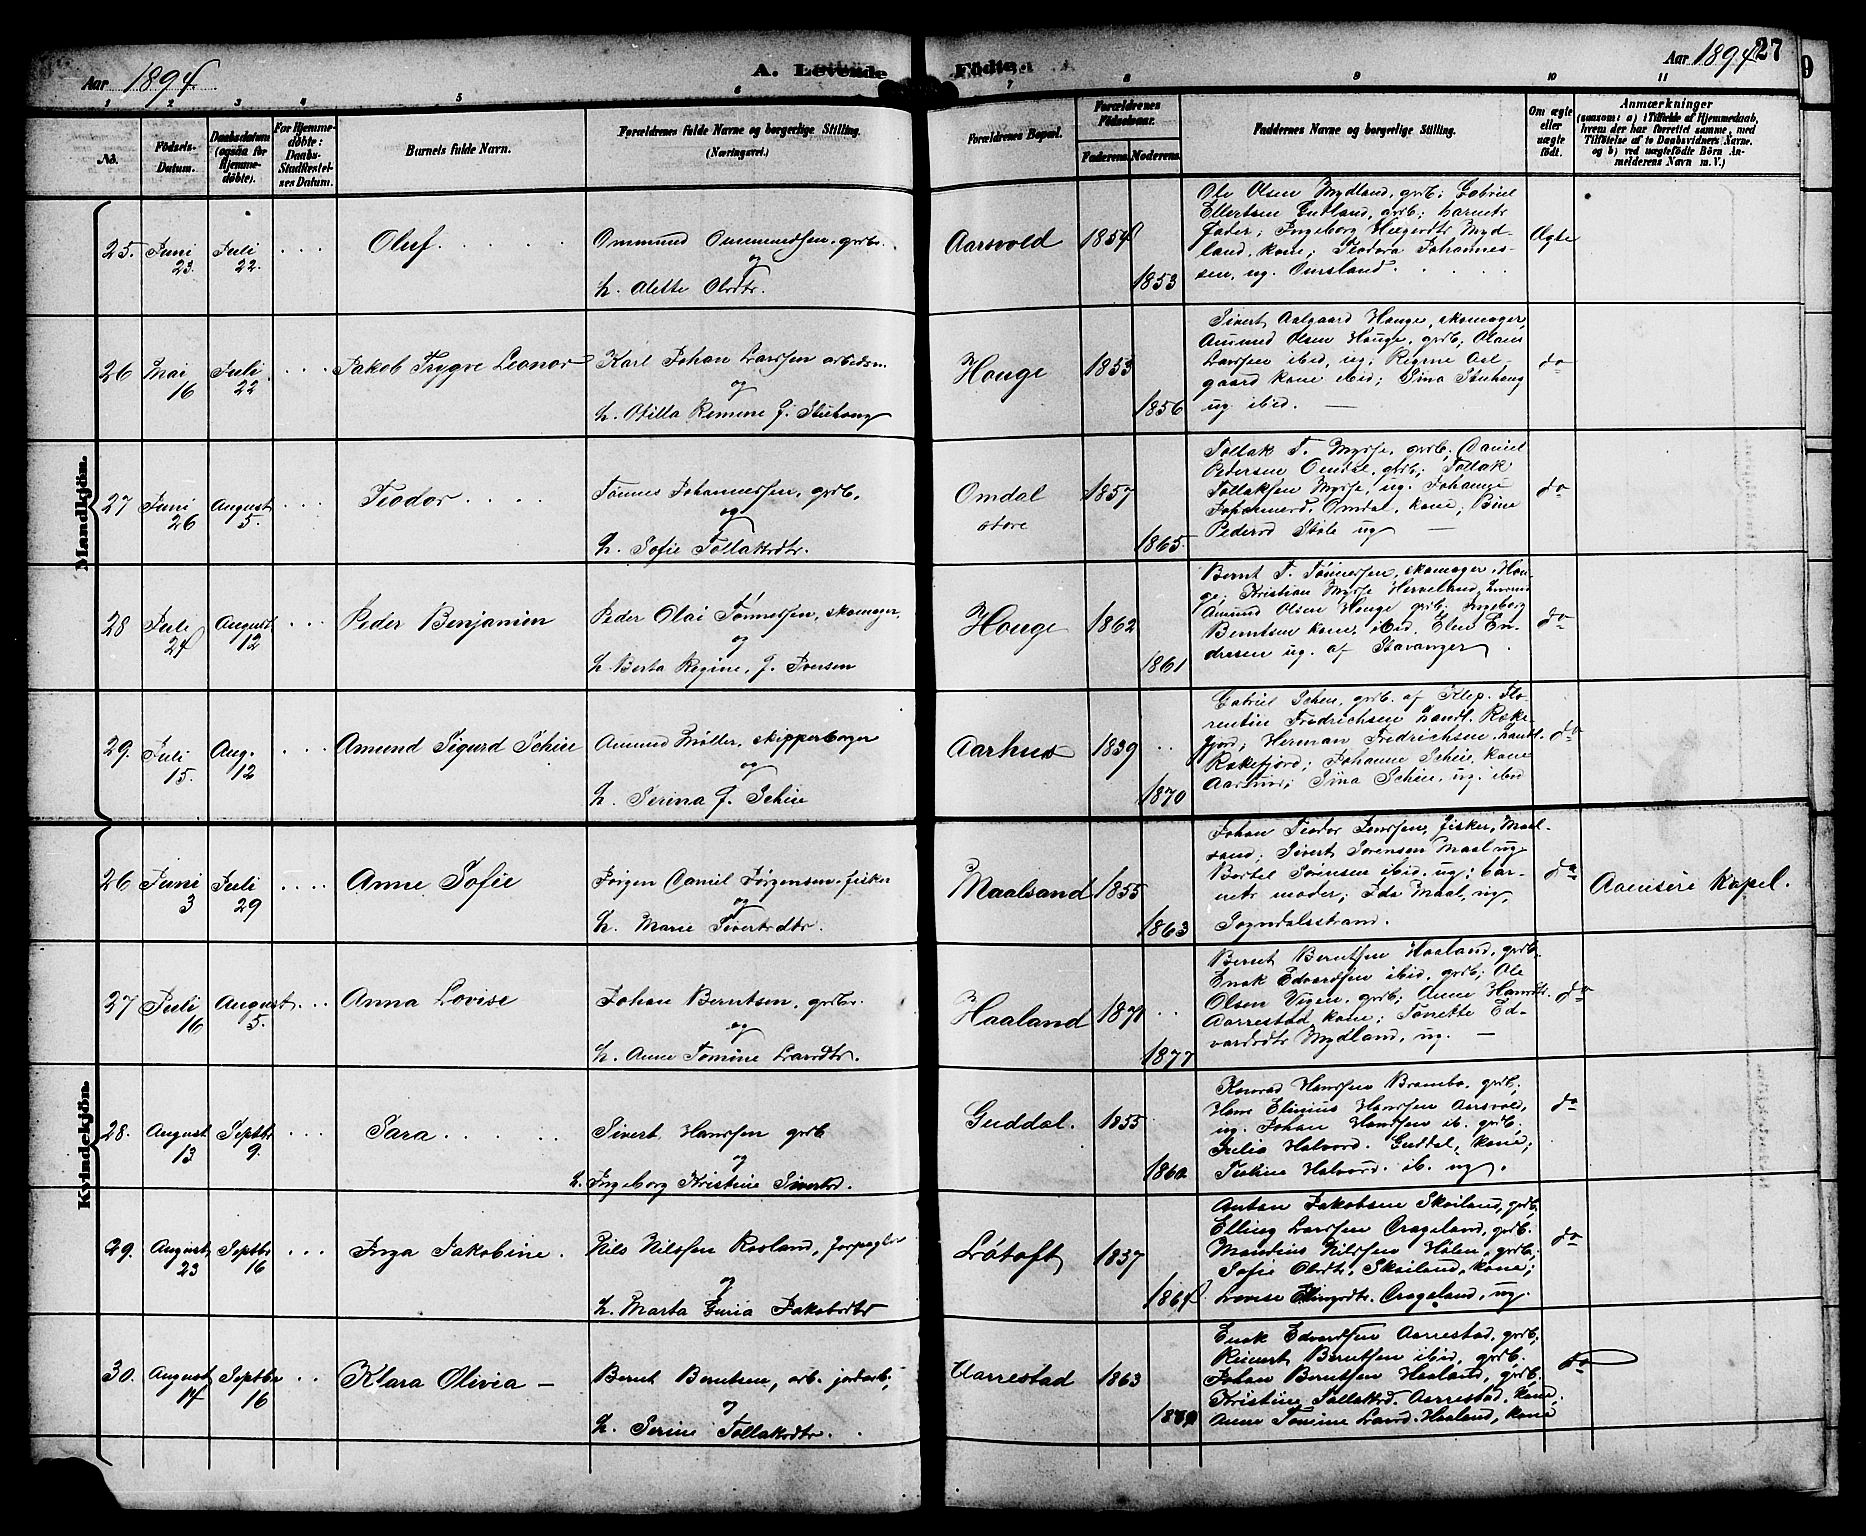 Aar 1894. A. Levende Födte Aar 1894 27
1 2 3 4 5 6 7 8 9 10 11
No. Födsels-Datum. Daabsdatum (ogsaa for Hjemme-døbte). For Hjemme-döbte: Daabs-Stadfæstelses Datum. Barnets fulde Navn. Forældrenes fulde Navne og borgerlige Stilling. (Næringsvei.) Forældrenes Bopæl. Forældrenes Födselsaar. Faderens. Moderens. Faddernes Navne og borgerlige Stilling. Om ægte eller uægte födt. Anmærkninger
(saasom: a) i Tilfælde af Hjemmedaab,
hvem der har forrettet samme, med
Tilföielse af to Daabsvidners Navne.
og b) ved uægtefödte Börn An-
melderens Navn m. V.)
Mandkjön.
25. Juni 23. Juli 22. Oluf.
Ommund Ommundsen, grdbr.
og
h. Alette Olsdtr.
Aarsvold 1854 1853
Ole Olsen Mydland, grdb; Gabriel
Ellertsen Eutland, grdb; barnets
fader; Ingeborg
land, kone; Teodora Johannes-
sen, ug. Omsland.
Ægte
26 Mai 16 Juli 22 Jakob Trygve Leonor
Karl Johan Larssen arbeidsm.
og
h. Otilla Remine J. Stuhoug
Houge 1853 1856
Sivert Aalgaard Houge, skomager,
Amund Olsen Houge, grdb; Olaus
Larssen ibid, ug; Regine Aal-
gaard kone ibid; Sina Stuhoug
ug ibid.
do
27 Juni 26 August 5. Teodor
Tönnes Johannessen, grdb.
og
h. Sofie Tollaksdtr.
Omdal
store
1857 1865.
Tollak T. Myrse, grdb; Daniel
Pedersen Omdal, grdb; Tollak
Tollaksen Myrse, ug. Johanne
Johannesd. Omdal, kone; Bine
Pedersd Støle ug
do
28 Juli 24 August 12 Peder Benjamin
Peder Olai Tönnessen, skomager,
og
h. Berta Regine, J. Iversen
Houge 1862 1861
Bernt T. Tönnessen, skomager, Hou-
ge; Kristian Myrse Herveland,
Amund Olsen Houge grdb; Ingeborg
Berntsen kone, ibid. Elen En-
dresen ug. af Stavanger
do
29. Juli 15. Aug. 12 Amund Sigurd Scheie
Amund Möller, skipperborger
og
h. Serina J. Scheie
Aarhus 1839 1870
Gabriel Scheie, grdb. af Klep. Flo-
rentin Fredrichsen handl. Ræke-
fjord; Herman Fredrichsen, handl.
Rækefjord; Johanne Scheie, kone
Aarhus; Sina Scheie, ug. ibid
do
Kvindekjön.
26 Juni 3 Juli 29 Anne Sofie
Jörgen Daniel Jörgensen, fisker
og
h. Marie Sivertsdtr.
Maalsand 1855 1863
Johan Teodor Jenssen, fisker, Maal-
sand; Sivert Sørensen Maal ug
Bertel Sörensen ibid. ug; bar-
nets moder; Ida Maal, ug,
Sogndalsstrand.
do
Aamsire Kapel.
27 Juli 16 August 5. Anna Lovise
Johan Berntsen, grdbr.
og
h. Anne Tomine Larsdtr.
Haaland 1871 1877
Bernt Berntsen Haaland, grdb.
Enok Edvardsen ibid, grdb; Ole
Olsen Vigen, grdb; Anne Hansdtr.
Aarrestad, kone; Tonette Ed-
vardsdtr Mydland, ug.
do
28. August 13 Septbr 9. Sara
Sivert Hanssen grdb
og
h. Ingeborg Kristine Sivertsd.
Guddal. 1855 1862
Konrad Hanssen Brambo, grdb.
Hans Elinius Hanssen Aarsvold,
ug. Johan Hanssen ib. grdb.
Julia Halvord. Guddal, kone;
Tekine Halvord. ib. ug.
do
29. August 23 Septbr 16 Inga Jakobine.
Nils Nilssen Rosland, forpagter
og
h. Marta Guria Jakobsdtr
Løtoft 1837 1864.
Anton Jakobsen Skoiland, grdb,
Elling Larssen Crageland, grdb.
Mandius Nilssen Hølen, grdb;
Sofie Olsdtr. Skoiland, kone;
Lovise Ellingsdtr. Crageland, ug.
do
30. August 17 Septbr 16 Klara Olivia
Bernt Berntsen, arb. jordarb,
og
h. Serine Tollaksdtr.
Aarrestad 1863
Enok Edvardsen Aarrestad, grdb;
Reinert Berntsen ibid, grdb.
Johan Berntsen Haaland, grdb,
Kristine Tollaksd. Aarrestad, kone,
Anne Tomine Larsd. Haaland, kone
do